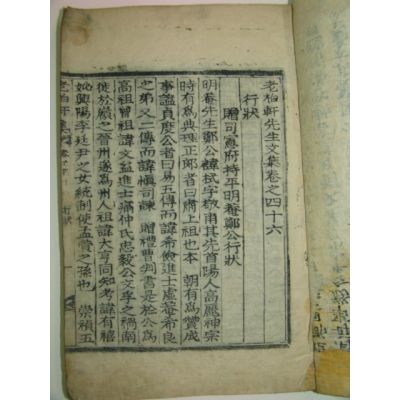 老柏軒先生文集卷之四十六
行狀
贈司憲府持平明菴鄭公行狀
明菴先生鄭公諱栻字敬甫其先首陽人高麗神宗
時有爲典理正郞者曰肅上祖也本 朝有爲贊成
事謚貞度公者曰易五傳而諱希儉進士虛菴希良
之弟又二傳而諱愼司諫 贈禮曹判書是於公爲
高祖曾祖諱文益進士痛仲氏忠毅公文孚之禍南
徙於嶺之晉州遂爲州人祖諱大亨同知考諱有禧
妣興陽李廷尹之女統制使孟賁之孫也 崇禎五